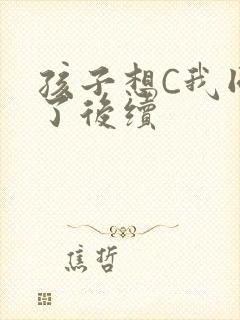 孩子想C我
了後續
焦哲